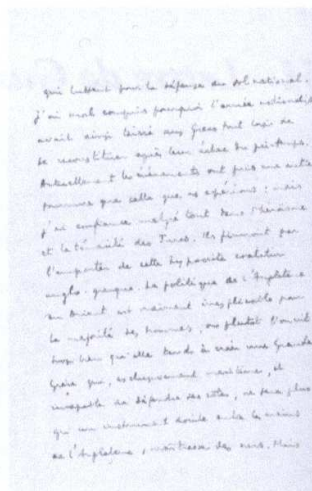 qui luttent pour la défense du sol national.
j'ai mal compris pourquoi l'armée nationaliste
avait ainsi laissé aux Grecs tout loisir de
se reconstituer après leur échec du printemps.
Actuellement les événements ont pris une autre
tournure que celle que nous espérions ; mais
j'ai confiance malgré tout dans l'héroïsme
et la ténacité des Turcs. Ils finiront par
l'emporter de cette hypocrite coalition
anglo-grecque. La politique de l'Angleterre
en Orient est vraiment inexplicable pour
la majorité des hommes, ou plutôt l'on voit
trop bien qu'elle tend à créer une Grande
Grèce qui, exclusivement maritime, et
incapable de défendre ses côtes, ne sera plus
qu'un instrument docile entre les mains
de l'Angleterre, maîtresse des mers. Mais